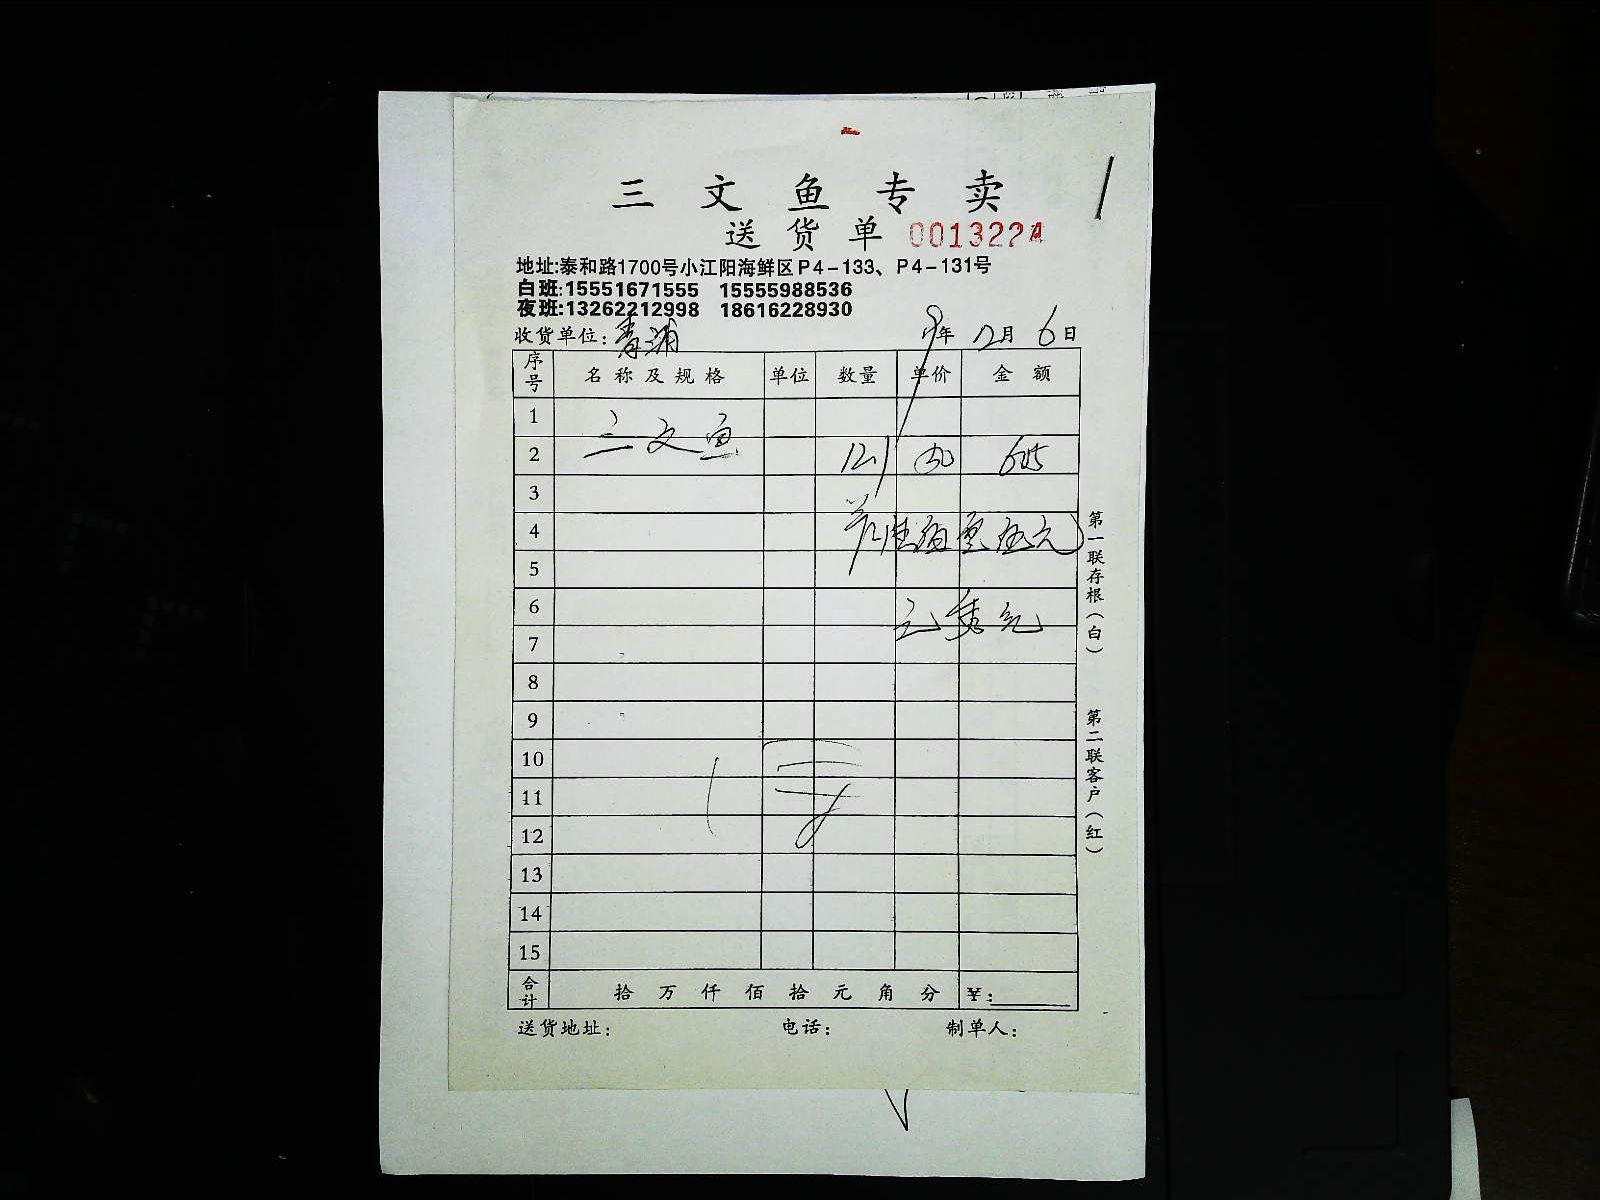 三文鱼专卖
送货单 0013224
地址:泰和路1700号小江阳海鲜区P4-133、P4-131号
白班:15551671555 15555988536
夜班:13262212998 18616228930
收货单位: 青浦 9年 12月 6日
序号 名称及规格 单位 数量 单价 金额
1
三文鱼
2 121 50 605
3
4
5
6
7
8
9
10
11
12
13
14
15
合计 拾万仟佰拾元角分 ¥:
送货地址: 电话: 制单人:
第一联存根(白)
第二联客户(红)